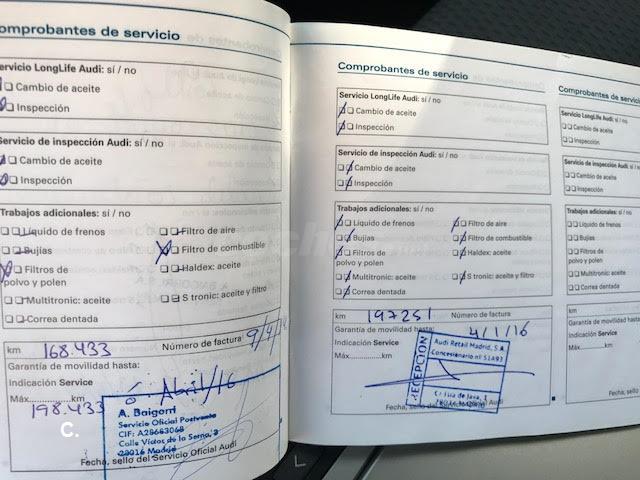 Comprobantes de servicio
ervicio LongLife Audi: sí / no
Cambio de aceite
Inspección
Servicio de inspección Audi: sí / no
Cambio de aceite
Inspección
Trabajos adicionales: sí / no
Líquido de frenos
Filtro de aire
Bujías
Filtro de combustible
Filtros de
polvo y polen
Haldex: aceite
Multitronic: aceite
S tronic: aceite y filtro
Correa dentada
km 168.433 Número de factura
Garantía de movilidad hasta:
Indicación Service
Abril/16
Máx.............km
198.433
A. Baigorri
Servicio Oficial Postventa
CIF: A28663068
28016 Madrid
Fecha, sello del Servicio Oficial Audi
C.
Comprobantes de servicio
Servicio LongLife Audi: sí / no
Cambio de aceite
Inspección
Servicio de inspección Audi: sí / no
Cambio de aceite
Inspección
Trabajos adicionales: sí / no
Líquido de frenos
Filtro de aire
Bujías
Filtro de combustible
Filtros de
polvo y polen
Haldex: aceite
Multitronic: aceite
S tronic: aceite y filtro
Correa dentada
km 197251 Número de factura
Garantía de movilidad hasta: 4/1/16
Indicación Service
Máx.............km
RECEPCION
Audi Retail Madrid, S.A.
Concesionario nº 51A93
Fecha, sello del Servicio Oficial Audi
Comprobantes de servici
Servicio LongLife Audi: sí / no
Cambio de aceite
Inspección
Servicio de inspección Audi: sí / no
Cambio de aceite
Inspección
Trabajos adicionales: sí / no
Líquido de frenos
Bujías
Filtros de
polvo y polen
Multitronic: aceite
Correa dentada
km
Garantía de movilidad hasta:
Indicación Service
Máx.............km
Fecha, sello del